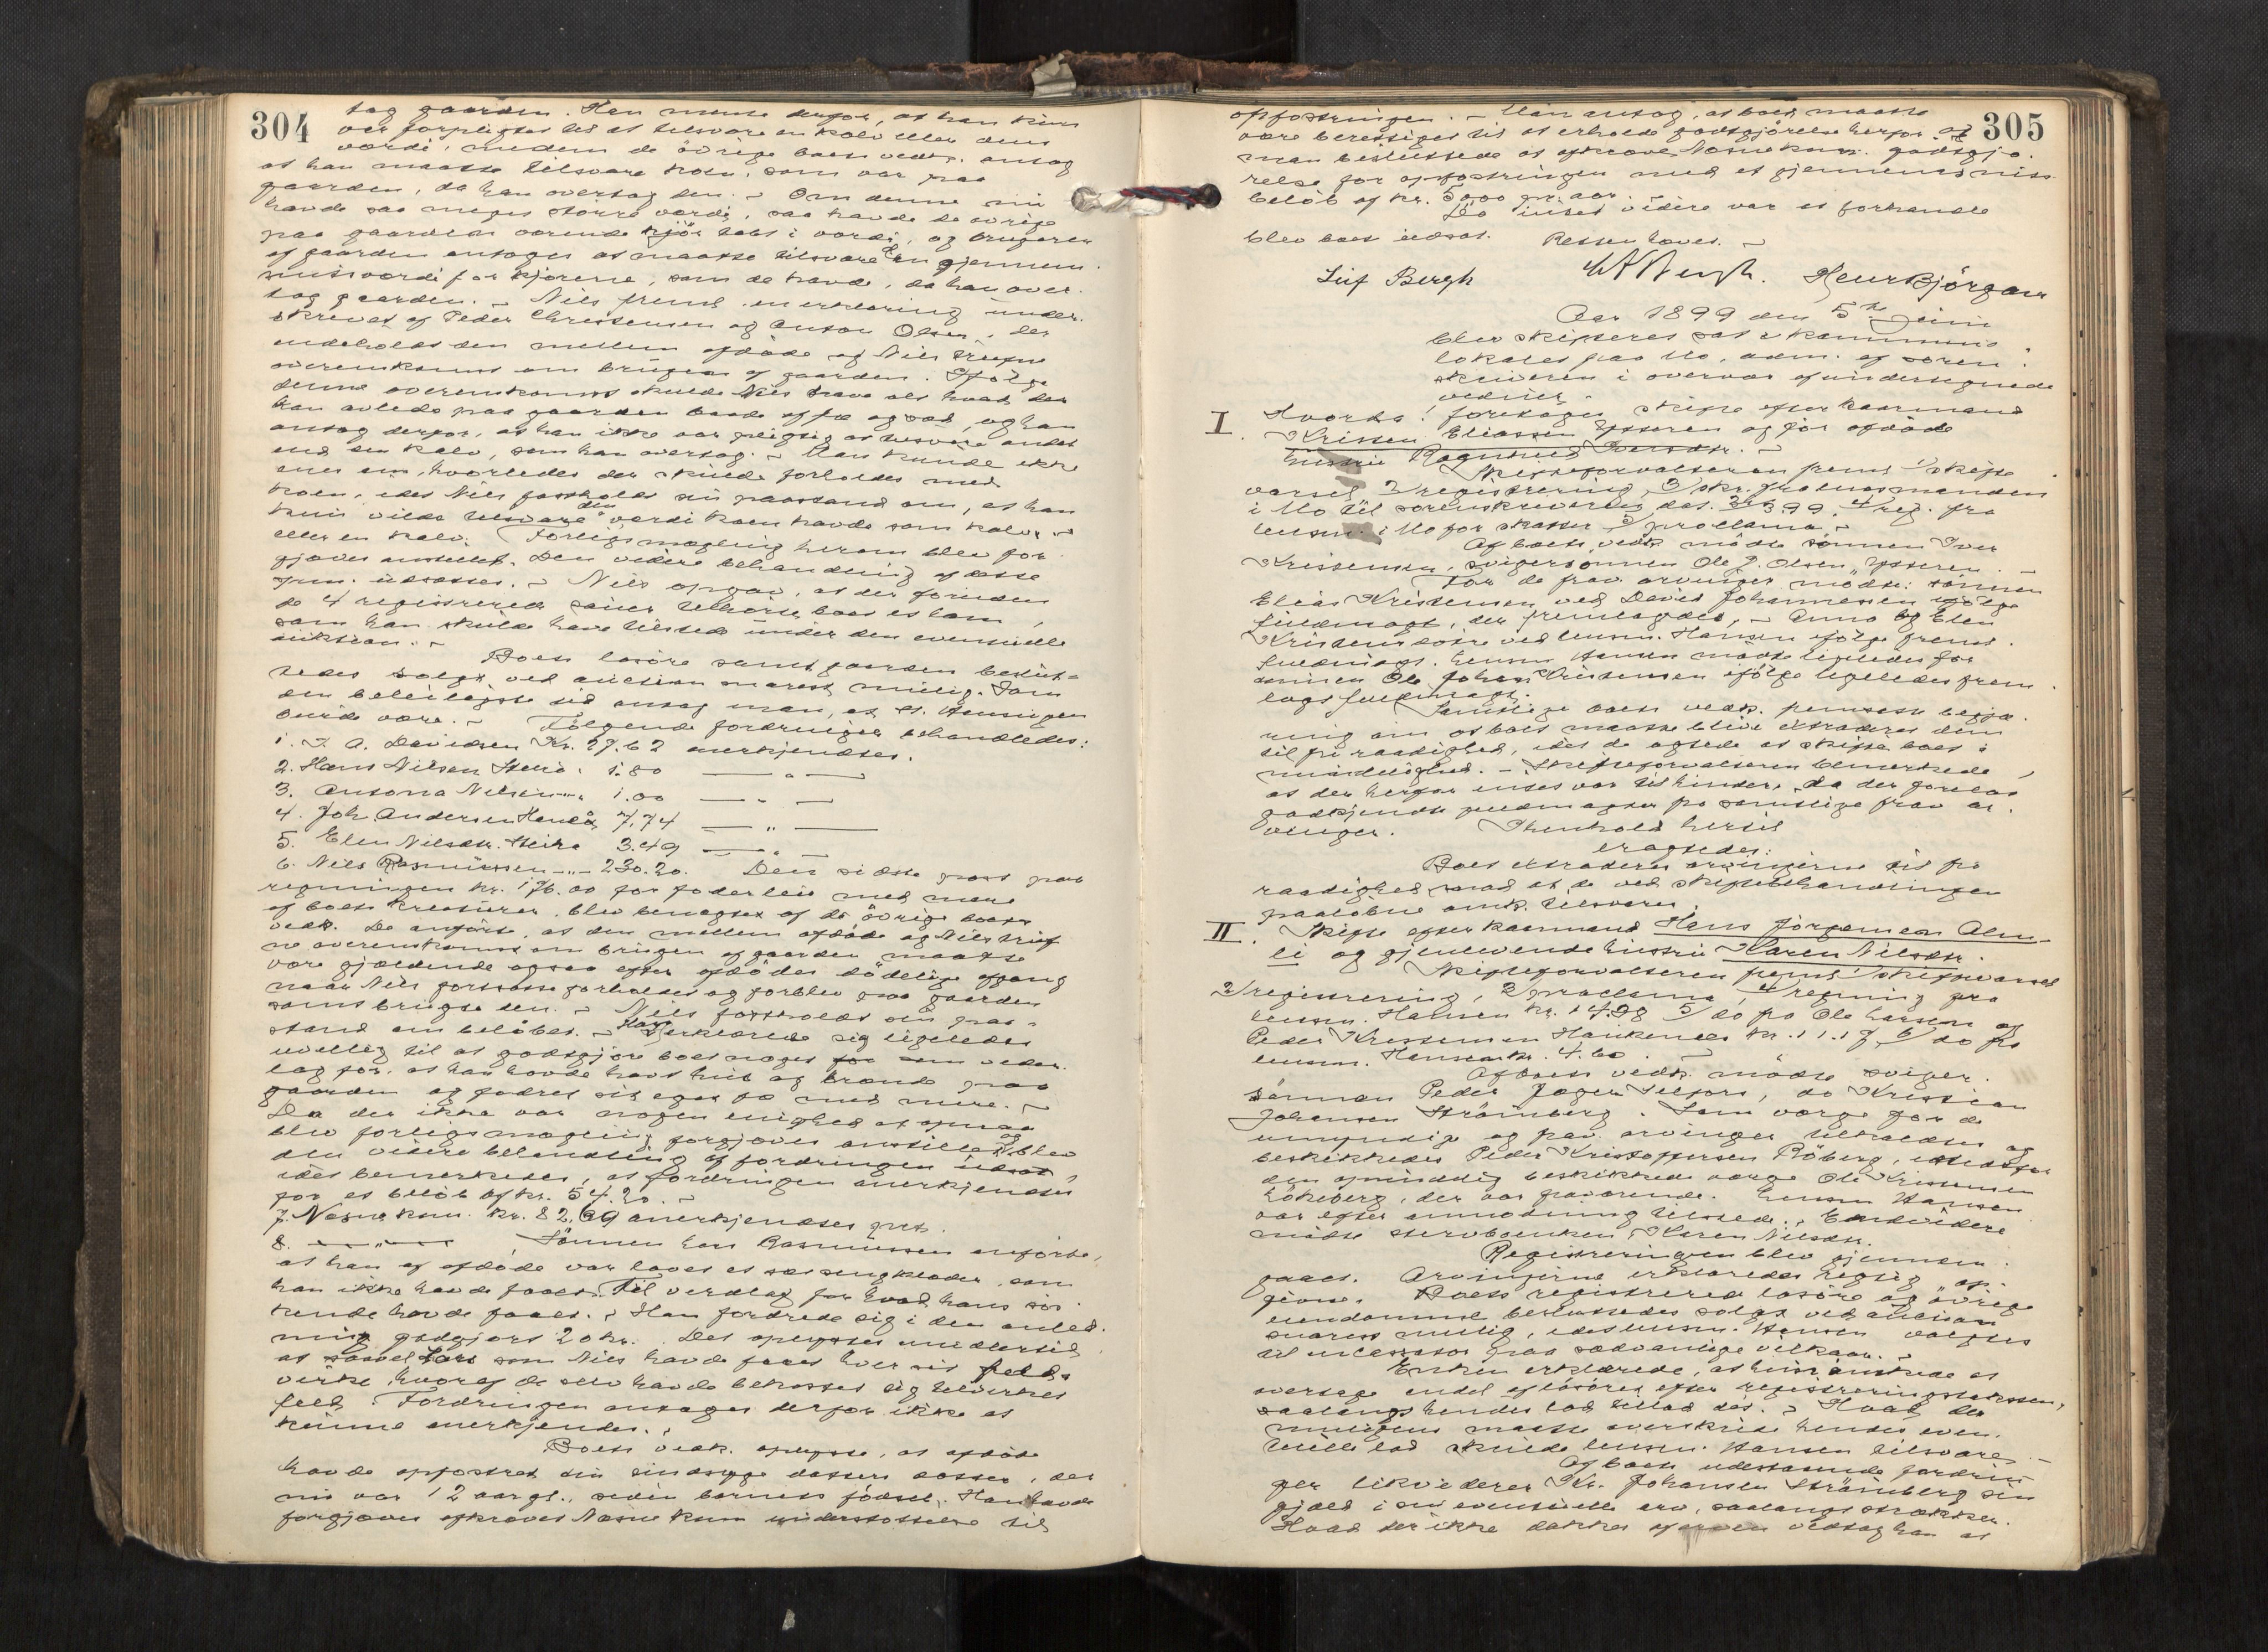 304
tog gaarden. Han mente derfor, at han kun
var forpligtet til at tilsvare en kalv eller dens
værdi, medens de övrige boets vedk. antog
at han maatte tilsvare koen, som var paa
gaarden, da han overtog den. - Om denne nu
havde saa meget större værdi, saa havde de övrige
paa gaarden værende kjör tabt i værdi, og brugeren
af gaarden antages at maatte tilsvare en gjennem-
snitsværdi for kjörene, som de havde, da han over-
tog gaarden. - Nils freml. en erklæring under-
skrevet af Peder Christensen og Anton Olsen, der
indeholdt den mellem afdöde og Nils trufne
overenskomst om brugen af gaarden. Ifölge
denne overenskomst skulde Nils have alt hvad der
kan avledes paa gaarden baade af fæ og sæd, og han
antog derfor, at han ikke var pligtig at tilsvare andet
end en kalv, som han overtog. - Man kunde ikke
enes om, hvorledes der skulde forholdes med
koen, idet Nils fastholdt sin paastand om, at han
kun vilde tilsvare den værdi koen havde som kalv -
eller en kalv. Forligsmægling herom blev for-
gjæves anstillet. Den videre behandling af dette
spm. udsættes. - Nils opgav, at der foruden
de 4 registrerede sauer tilhörte boet et lam,
som han skulde have tilstede under den eventuelle
auktion. -
Boets lösöre samt gaarden beslut-
tedes solgt ved auction snarest mulig. Som
den beleiligste tid antog man, at St. Hanstiden
burde være. - Fölgende fordringer behandledes:
1. I. A. Davidsen Kr. 27.62 anerkjendtes.
2. Hans Nilsen " 1.80 — " —
3. Antona Nilsen " 1.00 — " —
4. Joh. Andersen 7,74 — " —
5. Elen Nilsdtr. 3.49 — " —
6. Nils Rasmussen - " - 230.20. Den sidste post paa
regningen kr. 176.00 for foderleie med mere
af boets kreaturer, blev benægtet af de övrige boets
vedk. De anförte, at den mellem afdöde og Nils truf-
ne overenskomst om brugen af gaarden maatte
være gjældende ogsaa efter afdödes dödelige afgang
naar Nils fortsatte forholdet og forblev paa gaarden
samt brugte den. - Nils fastholdt sin paa-
stand om belöbet. - Han erklærede sig ligeledes
uvillig til at godtgjöre boet noget som veder-
lag for, at han havde havt hus og brænde paa
gaarden og fodret sit eget fæ med mere. -
Da der ikke var nogen enighed at opnaa
blev forligsmægling forgjæves anstillet og blev
den videre behandling af fordringen udsat,
idet bemerkedes, at fordringen anerkjendtes
for et belöb af kr. 54.20. -
7. Nesne kom. kr. 82,69 anerkjendtes
8. — " — Sönnen Lars Rasmussen anförte,
at han af afdöde var lovet et sæt sengklæder, som
han ikke havde faaet. Til vederlag for hvad hans sös-
kende havde faaet. - Han fordrede sig i den anled-
ning godtgjort 20 kr. Det oplystes imidlertid
at saavel Lars som Nils havde faaet hver sit feld-
virke, hvoraf de selv havde bekostet sig tilvirket
feld. Fordringen antages derfor ikke at
kunne anerkjendes. -
Boets vedk. oplyste, at afdöde
havde opfostret sin sindssyge datters datter, der
nu var 12 aar gl., siden barnets födsel. Han havde
forgjæves afkrævet Nesne kom understöttelse til
305
opfostringen. - Man antog, at boet maatte
være berettiget til at erholde godtgjörelse herfor og
man besluttede at afkræve Nesne kom. godtgjö-
relse for opfostringen med et gjennemsnits-
belöb af kr. 50.00 pr. aar.
Da intet videre var at forhandle
blev boet udsat. Retten hævet. -
Leif Bergh Henr Björgan
Aar 1899 den 5te juni
blev skifteret sat i kommune-
lokalet paa Mo, adm. af soren-
skriveren i overvær af undertegnede
vidner.
I. Hvorda: foretoges skifte efter kaarmand
Kristen Eliassen Ytteren og för afdöde
hustru Ragnhild Iversdtr. -
Skifteforvalteren freml 1/ skifte
varsel 2/ registrering, 3/ skr. fra lensmanden
i Mo til sorenskriveren, dat. 3-3-99. 4/ reg. fra
lensm. i Mo for skatter 5/ proclama -
Af boets vedk mödte sönnen Iver
Kristensen, svigersönnen Ole J. Olsen Ytteren. -
For de fravær. arvinger mödte: sönnen
Elias Kristensen ved David Johannessen ifölge
fuldmagt, der fremlagdes, - Anna og Elen
Kristensdötre ved lensm. Hansen ifölge freml.
fuldmagt. Lensm Hansen mödte ligeledes for
sönnen Ole Johan Kristensen ifölge ligeledes frem-
lagt fuldmagt.
Samtlige boets vedk. fremsatte begjæ-
ring om at boet maatte blive extraderet dem
til fri raadighed, idet de agtede at skifte boet i
mindelighed. - Skifteforvalteren bemærkede,
at der herfor intet var til hinder, da der forelaa
godkjendte fuldmagter fra samtlige frav. ar-
vinger. I henhold hertil
eragtedes:
Boet extraderes arvingerne til fri
raadighed mod at de ved skiftebehandlingen
paalöbne omk. tilsvares.
II. Skifte efter kaarmand Hans Jörgensen Alm-
li og gjenlevende hustru Karen Nilsdtr.
Skifteforvalteren freml 1/ skiftevarsel
2/ registrering, 3/ proclama, 4/ regning fra
lensm. Hansen kr. 14.98 5/ do fra Ole Larsen og
Peder Kristensen kr. 11.17 6/ do fra
lensm. Hansen kr. 4.60. -
Af boets vedk. mödte sviger-
sönnen Peder Jager Selfors, do Kristian
Johansen Strömberg. Som værge for de
umyndige og frav. arvinger tilkaldtes og
beskikkedes Peder Kristoffersen Röberg, istedetfor
den opmindelig beskikkede værge Ole Kristensen
der var fraværende. Lensm Hansen
var efter anmodning tilstede. - Endvidere
mödte stervboenken Karen Nilsdtr.
Registreringen blev gjennem-
gaaet. Arvingerne erklæredes rigtig op-
givne. Boets registrerede lösöre og övrige
eiendomme besluttedes solgt ved auction
snarest mulig, idet lensm. Hansen valgtes
til incassator paa sædvanlige vilkaar. -
Enken erklærede, at hun önskede at
overtage endel af lösöret efter registreringstaksten,
saalangt hendes lod tillod det. - Hvad der
muligens maatte overskride hendes even-
tuelle lod skulde lensm. Hansen tilsvare. -
Af boets udestaaende fordrin-
ger likviderer Kr. Johansen Strömberg sin
gjæld i sin eventuelle arv, saalangt strækker.
Hvad der ikke dækkes af arven vedtog han at